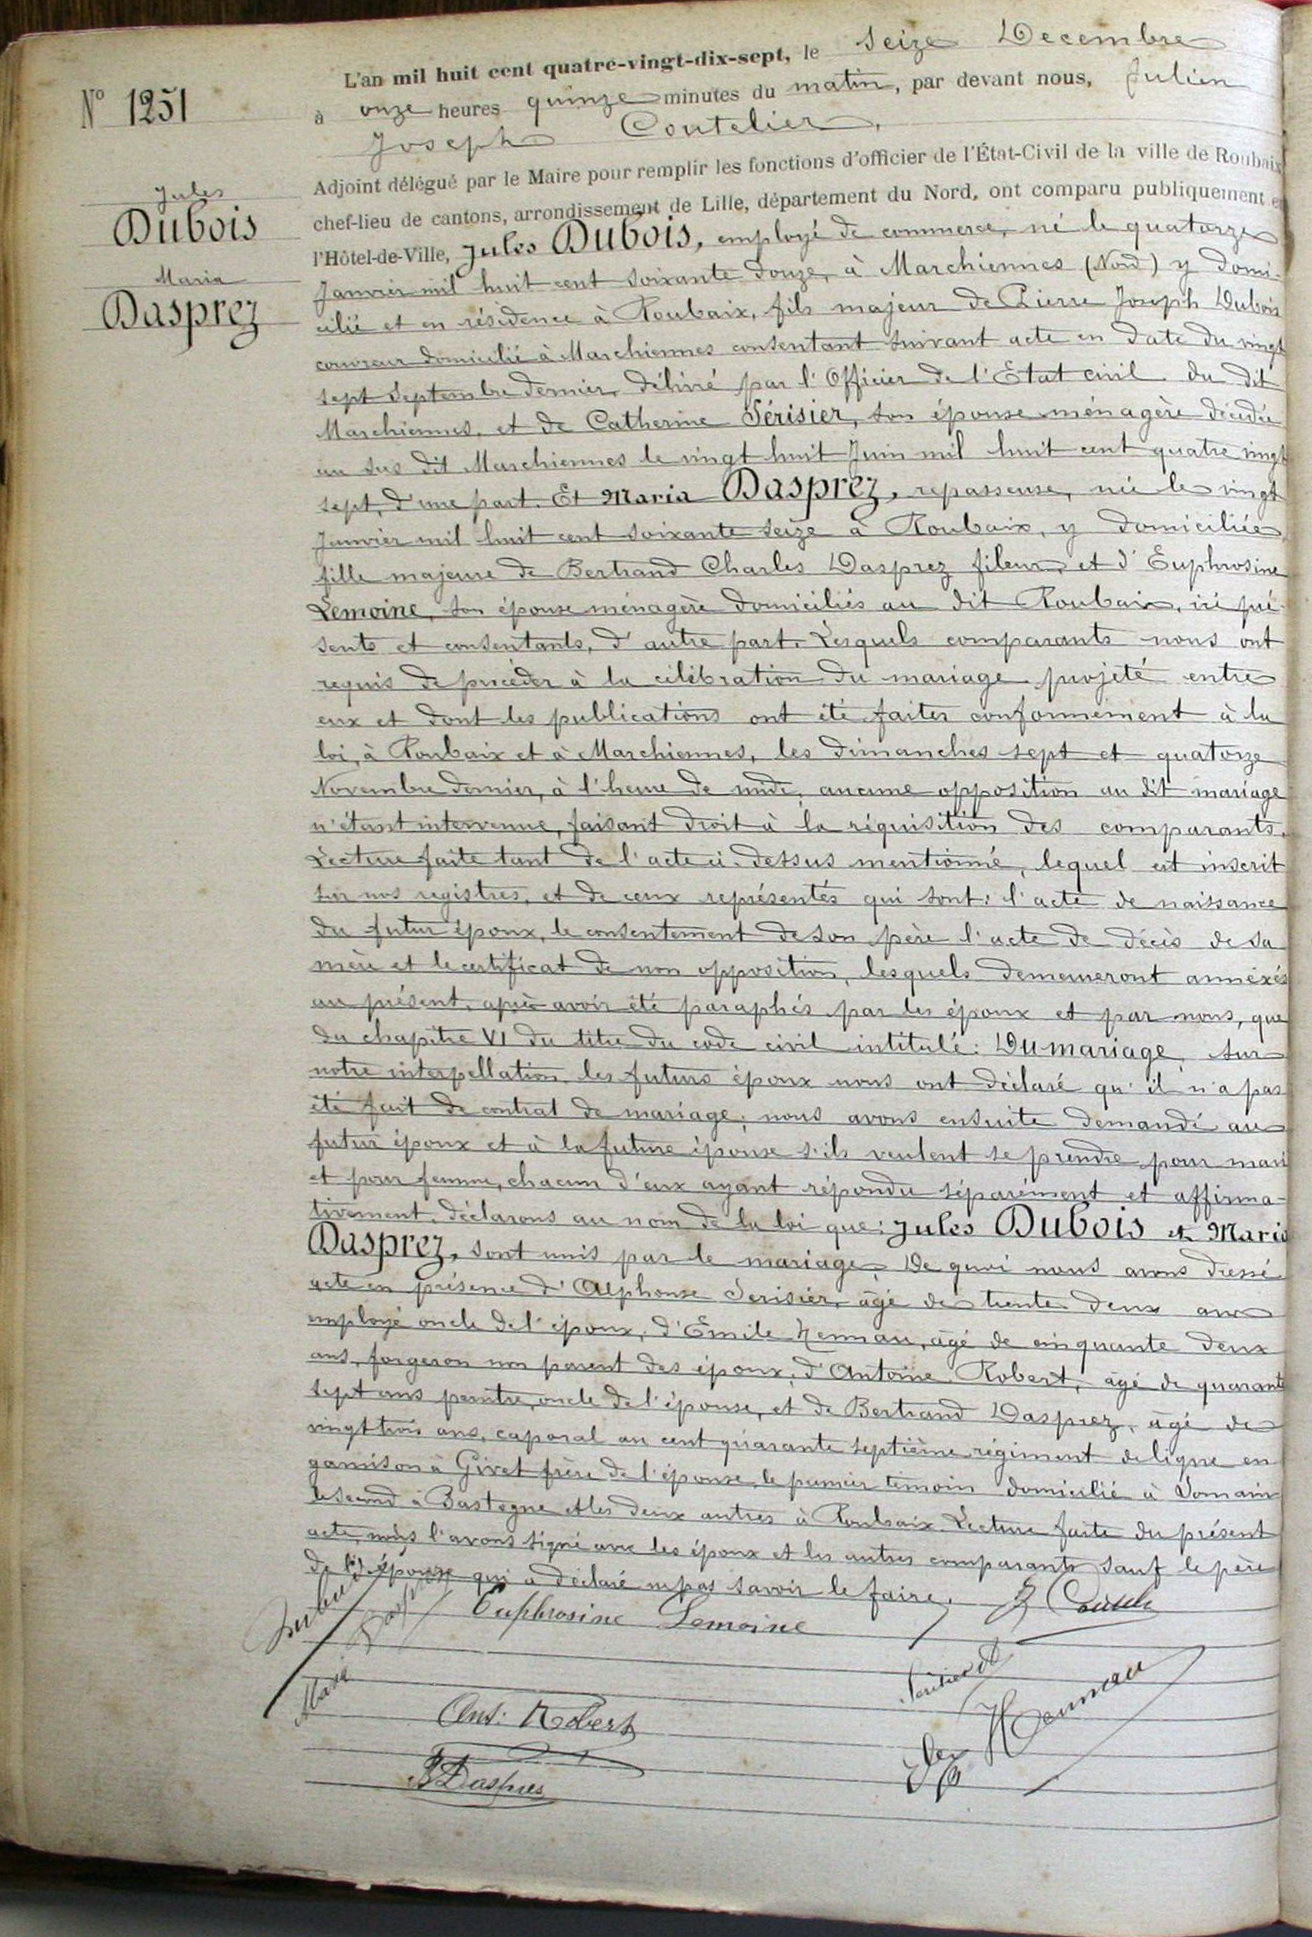 N° 1251
Jules
Dubois
Maria
Dasprez
L'an mil huit cent quatre-vingt-dix-sept, le seize Décembre
à onze heures quinze minutes du matin, par devant nous, Julien
Joseph Coutelier,
Adjoint délégué par le Maire pour remplir les fonctions d'officier de l'État-Civil de la ville de Roubaix
chef-lieu de cantons, arrondissement de Lille, département du Nord, ont comparu publiquement e
l'Hôtel-de-Ville, Jules Dubois, employé de commerce, né le quatorze
Janvier mil huit cent soixante douze, à Marchiennes (Nord) y domi-
cilié et en résidence à Roubaix, fils majeur de Pierre Joseph Dubois
couvreur domicilié à Marchiennes consentant suivant acte en date du vingt
sept Septembre dernier, délivré par l'Officier de l'Etat civil du dit
Marchiennes, et de Catherine Sérisier, son épouse ménagère décédée
au sus dit Marchiennes le vingt huit Juin mil huit cent quatre vingt
sept, d'une part. Et Maria Dasprez, repasseuse, née le vingt
Janvier mil huit cent soixante seize à Roubaix, y domiciliée
fille majeure de Bertrand Charles Dasprez fileur, et d'Euphrosine
Lemoine, son épouse ménagère domiciliés au dit Roubaix, ici pré-
sents et consentants, d'autre part. Lesquels comparants nous ont
requis de procéder à la célébration du mariage projeté entre
eux et dont les publications ont été faites conformément à la
loi, à Roubaix et à Marchiennes, les dimanches sept et quatorze
Novembre dernier, à l'heure de midi, aucune opposition au dit mariage
n'étant intervenue, faisant droit à la réquisition des comparants.
Lecture faite tant de l'acte ci-dessus mentionné, lequel est inscrit
sur nos registres, et de ceux représentés qui sont: l'acte de naissance
du futur époux, le consentement de son père l'acte de décès de sa
mère et le certificat de non opposition, lesquels demeureront annexés
au présent, après avoir été paraphés par les époux et par nous, que
du chapitre VI du titre du code civil intitulé: Du mariage, sur
notre interpellation les futurs époux nous ont déclaré qu'il n'a pas
été fait de contrat de mariage; nous avons ensuite demandé au
futur époux et à la future épouse s'ils veulent se prendre pour mari
et pour femme, chacun d'eux ayant répondu séparément et affirma-
tivement, déclarons au nom de la loi que: Jules Dubois et Maria
Dasprez, sont unis par le mariage. De quoi nous avons dressé
acte en présence d'Alphonse Serisier, âgé de trente deux ans
employé oncle de l'époux, d'Émile Hennau, âgé de cinquante deux
ans, forgeron non parent des époux, d'Antoine Robert, âgé de quarante
sept ans peintre, oncle de l'épouse, et de Bertrand Dasprez, âgé de
vingt trois ans, caporal au cent quarante septième régiment de ligne en
garnison à Givet frère de l'épouse, le premier témoin domicilié à Somain
le second à Bastogne et les deux autres à Roubaix. Lecture faite du présent
acte, nous l'avons signé avec les époux et les autres comparants sauf le père
de l'épouse qui a déclaré ne pas savoir le faire.
Dubois
Maria Dasprez
Euphrosine Lemoine
J Coutelier
Sérisier
Ant: Robert
Hennau
B Dasprez